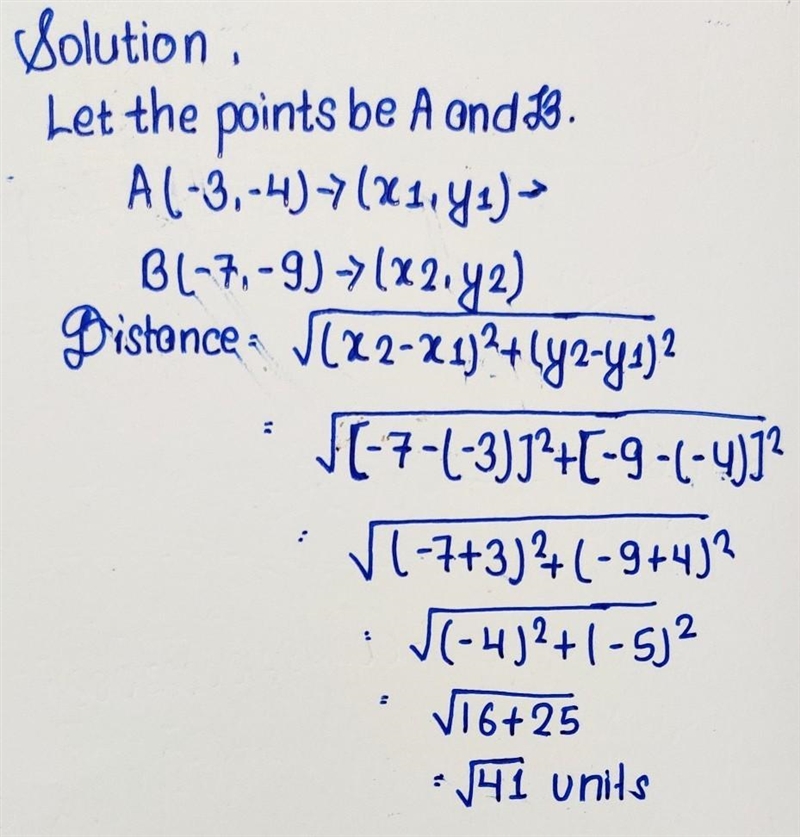 Solution,
Let the points be A and B.
A(-3,-4)→(x1,y1)→
B(-7,-9)→(x2,y2)
Distance = √(x2-x1)²+(y2-y1)²
= √[-7-(-3)]²+[-9-(-4)]²
= √(-7+3)²+(-9+4)²
= √(-4)²+(-5)²
= √16+25
= √41 units